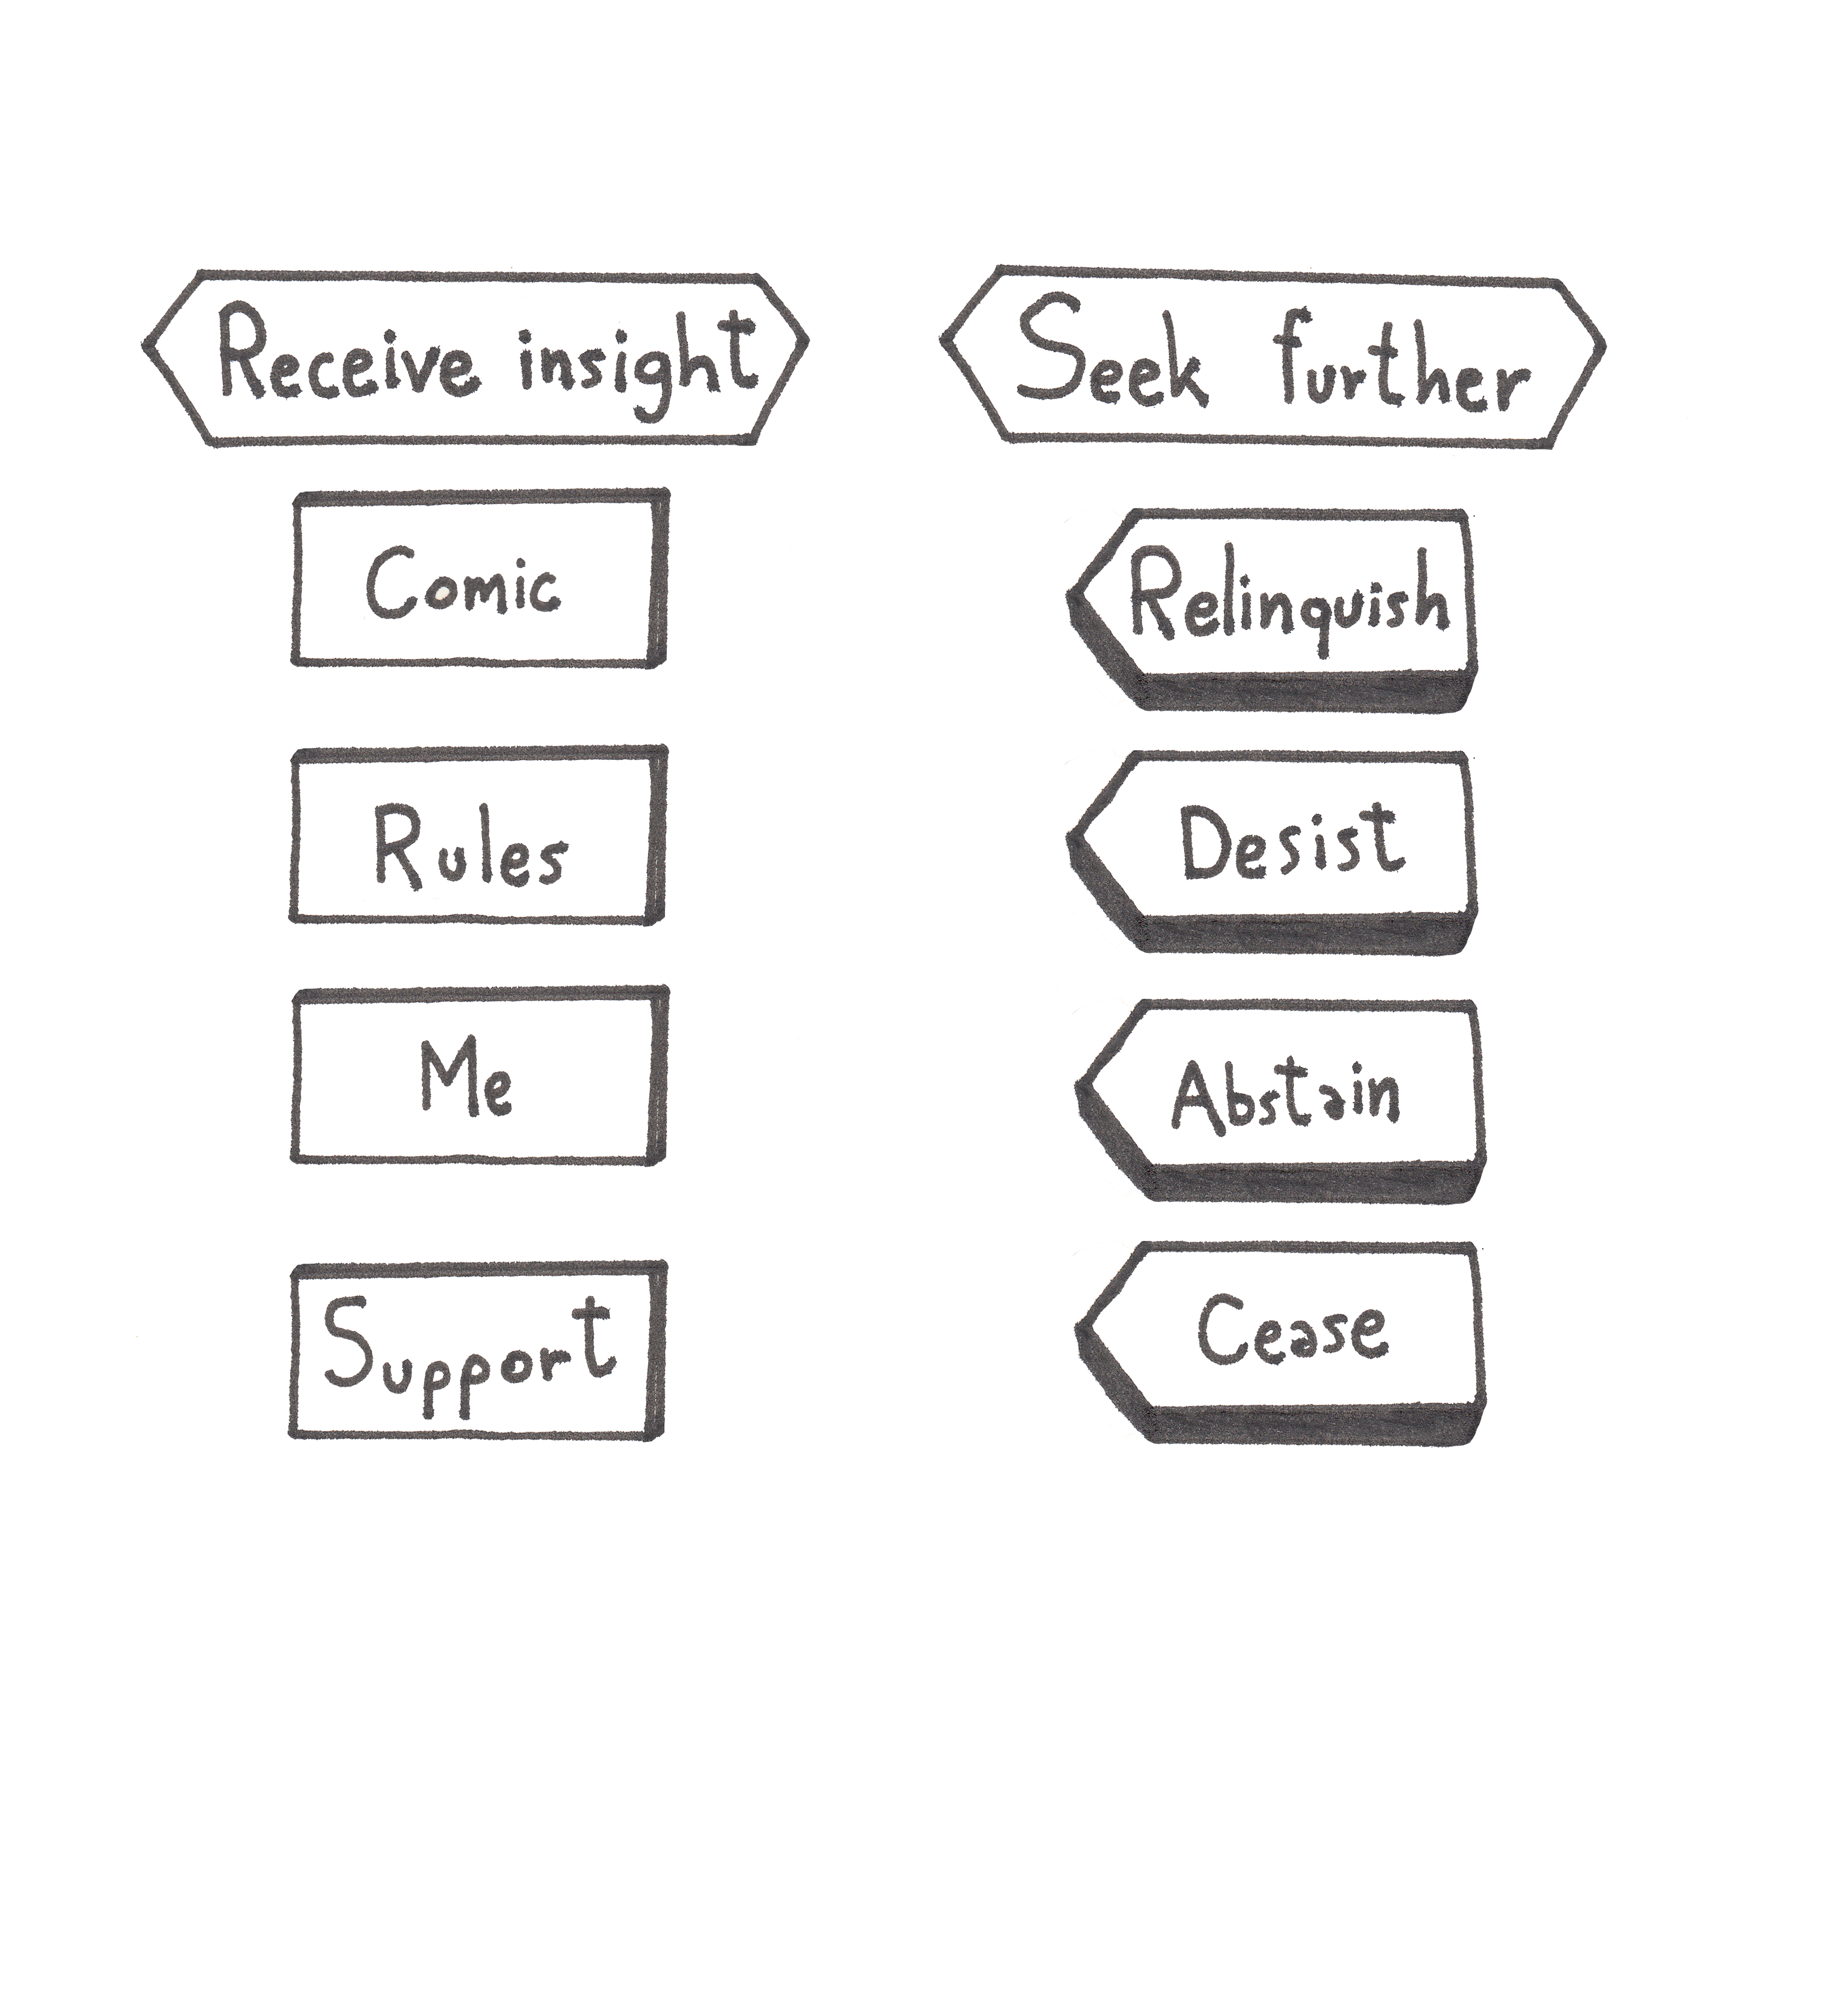 Receive insight
Comic
Rules
Me
Support
Seek further
Relinquish
Desist
Abstain
Cease